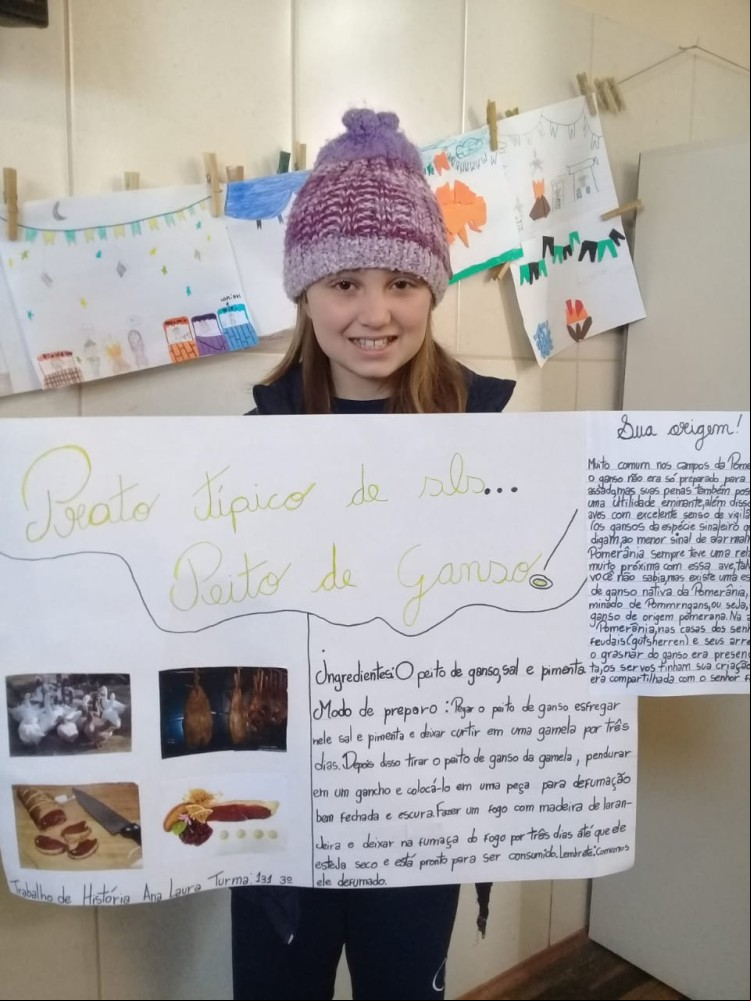 Prato típico de sls...
Peito de Ganso
Sua origem!
Muito comum nos campos da Pome
o ganso não era só preparado para
assado, mas suas penas também pos
uma utilidade eminante, além disso
aves com excelente senso de vigilâ
(os gansos da espécie sinaleiro g
digam, ao menor sinal de alarmalh
Pomerânia sempre teve uma rela
muito próxima com essa ave, talv
você não sabia, mas existe uma es
de ganso nativa da Pomerânia,
minado de Pommrngans, ou seja,
ganso de origem pomerana. Na a
Pomerânia, nas casas dos senh
feudais (gutsherren) e seus arre
o grasnar do ganso era presen
ta, os servos tinham sua criação
era compartilhada com o senhor f
Ingredientes: O peito de ganso, sal e pimenta
Modo de preparo: Pegar o peito de ganso esfregar
nele sal e pimenta e deixar curtir em uma gamela por três
dias. Depois disso tirar o peito de ganso da gamela, pendurar
em um gancho e colocá-lo em uma peça para defumação
bem fechada e escura. Fazer um fogo com madeira de laran-
jeira e deixar na fumaça do fogo por três dias até que ele
esteja seco e está pronto para ser consumido. Lembrete: Comemos
ele defumado.
Trabalho de História Ana Laura Turma: 131 3º